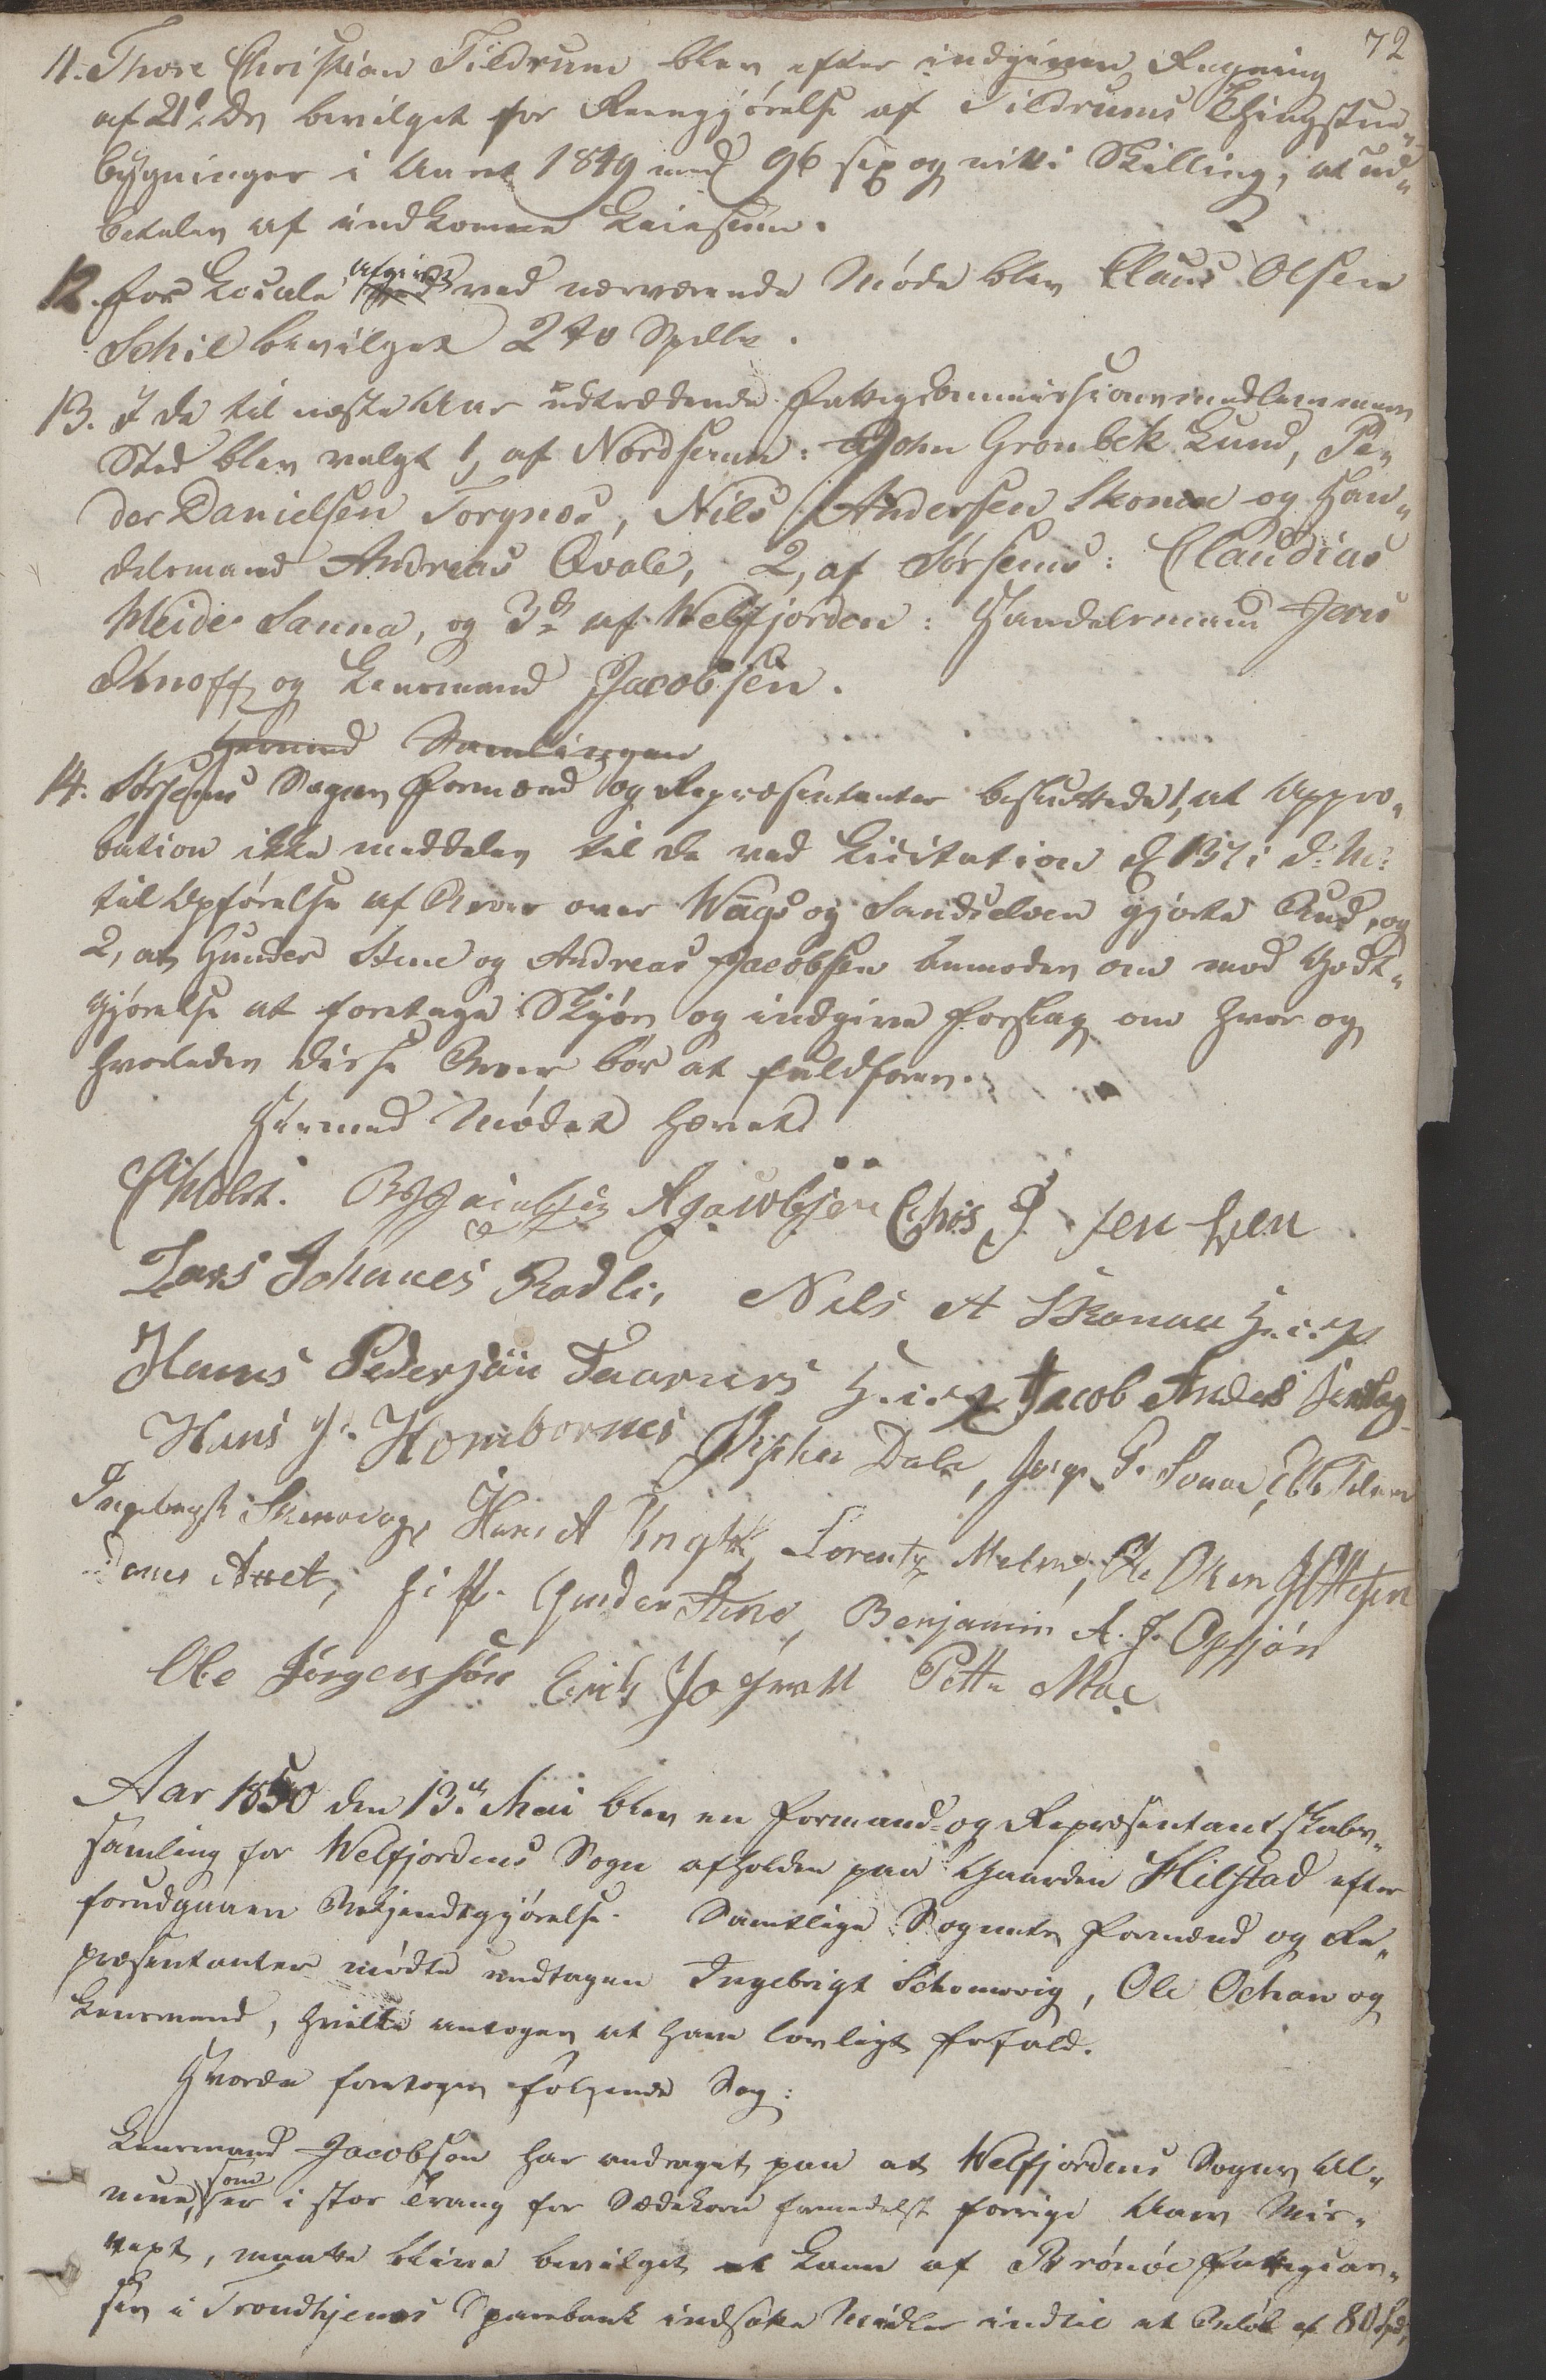 72
11. Thore Christian Tildrum blev efter indgiven Regning
af 21de ds bevilget for Reengjørelse af Tildrums Thingstue„
bygninger i Aaret 1849 med 96 sex og nitti Skilling, at ud„
betales af indkomne Leiesum.
12. For Locale afgivet ved nærværende Møde blev Claus Olsen
Schil bevilget 2 40 Spdlr.
13. I de til næste Aar udtrædende Fattigcommissionsmedlemmers
Sted blev valgt 1, af Nordsemn: John Grønbek Lund, Pe„
der Danielsen Torgnæs, Nils Andersen Skomo og Han„
delsmand Andreas Qvale, 2, af Sørsemn: Claudius
Meide Sanna, og 3die af Welfjorden: Handelsmand Jens
Knoff og Lensmand Jacobsen.
Hermed Samlingen
14. Sørsemns Sogns Formænd og Repræsentanter besluttede 1, at Appro„
bation ikke meddeles til de ved Licitation d 13de i d: M:
til Opførelse af Broer over Waags og Sandselven gjorte Bud, og
2, at Gunder Stene og Andreas Jacobsen anmodes om mod Godt„
gjørelse at foretage Skjøn og indgive Forslag om hvor og
hvorledes disse Broer bør at fuldføres.
Hermed Mødet hævet
Eholst. B J Jacobsen A Jacobsen Chris J. Jensen.
Lars Johanes Rodli, Nils A Skonau H.i.P.
Hans Pedersøn Taarnes H.i.P. Jacob Anders
Hans J. Hombornes Dale,
Ingebrigt Skomovig, Hans A Lorentz Ole Olsen
Gunder Stene, Benjamin A. J. Opsjøn
Ole Jørgensøn Erik Petter Moe
Aar 1850 den 13de Mai blev en Formand- og Repræsentantskabs„
samling for Welfjordens Sogn afholden paa Gaarden Hilstad efter
forudgaaen Bekjendtgjørelse. Samtlige Sognets Formænd og Re„
præsentanter mødte undtagen Ingebrigt Schomovig, Ole Ochan og
Lensmand, hvilke antoges at have lovligt Forfald.
Hvorda foretoges følgende Sag:
Lensmand Jacobsen har andraget paa at Welfjordens Sogns Al„
mue, som er i stor Trang for Sædekorn formedelst forrige Aars Mis„
vext, maatte blive bevilget et Laan af Brønøe Fattigcas„
ses i Trondhjems Sparebank indsatte Midler indtil et Beløb af 80 Spd,